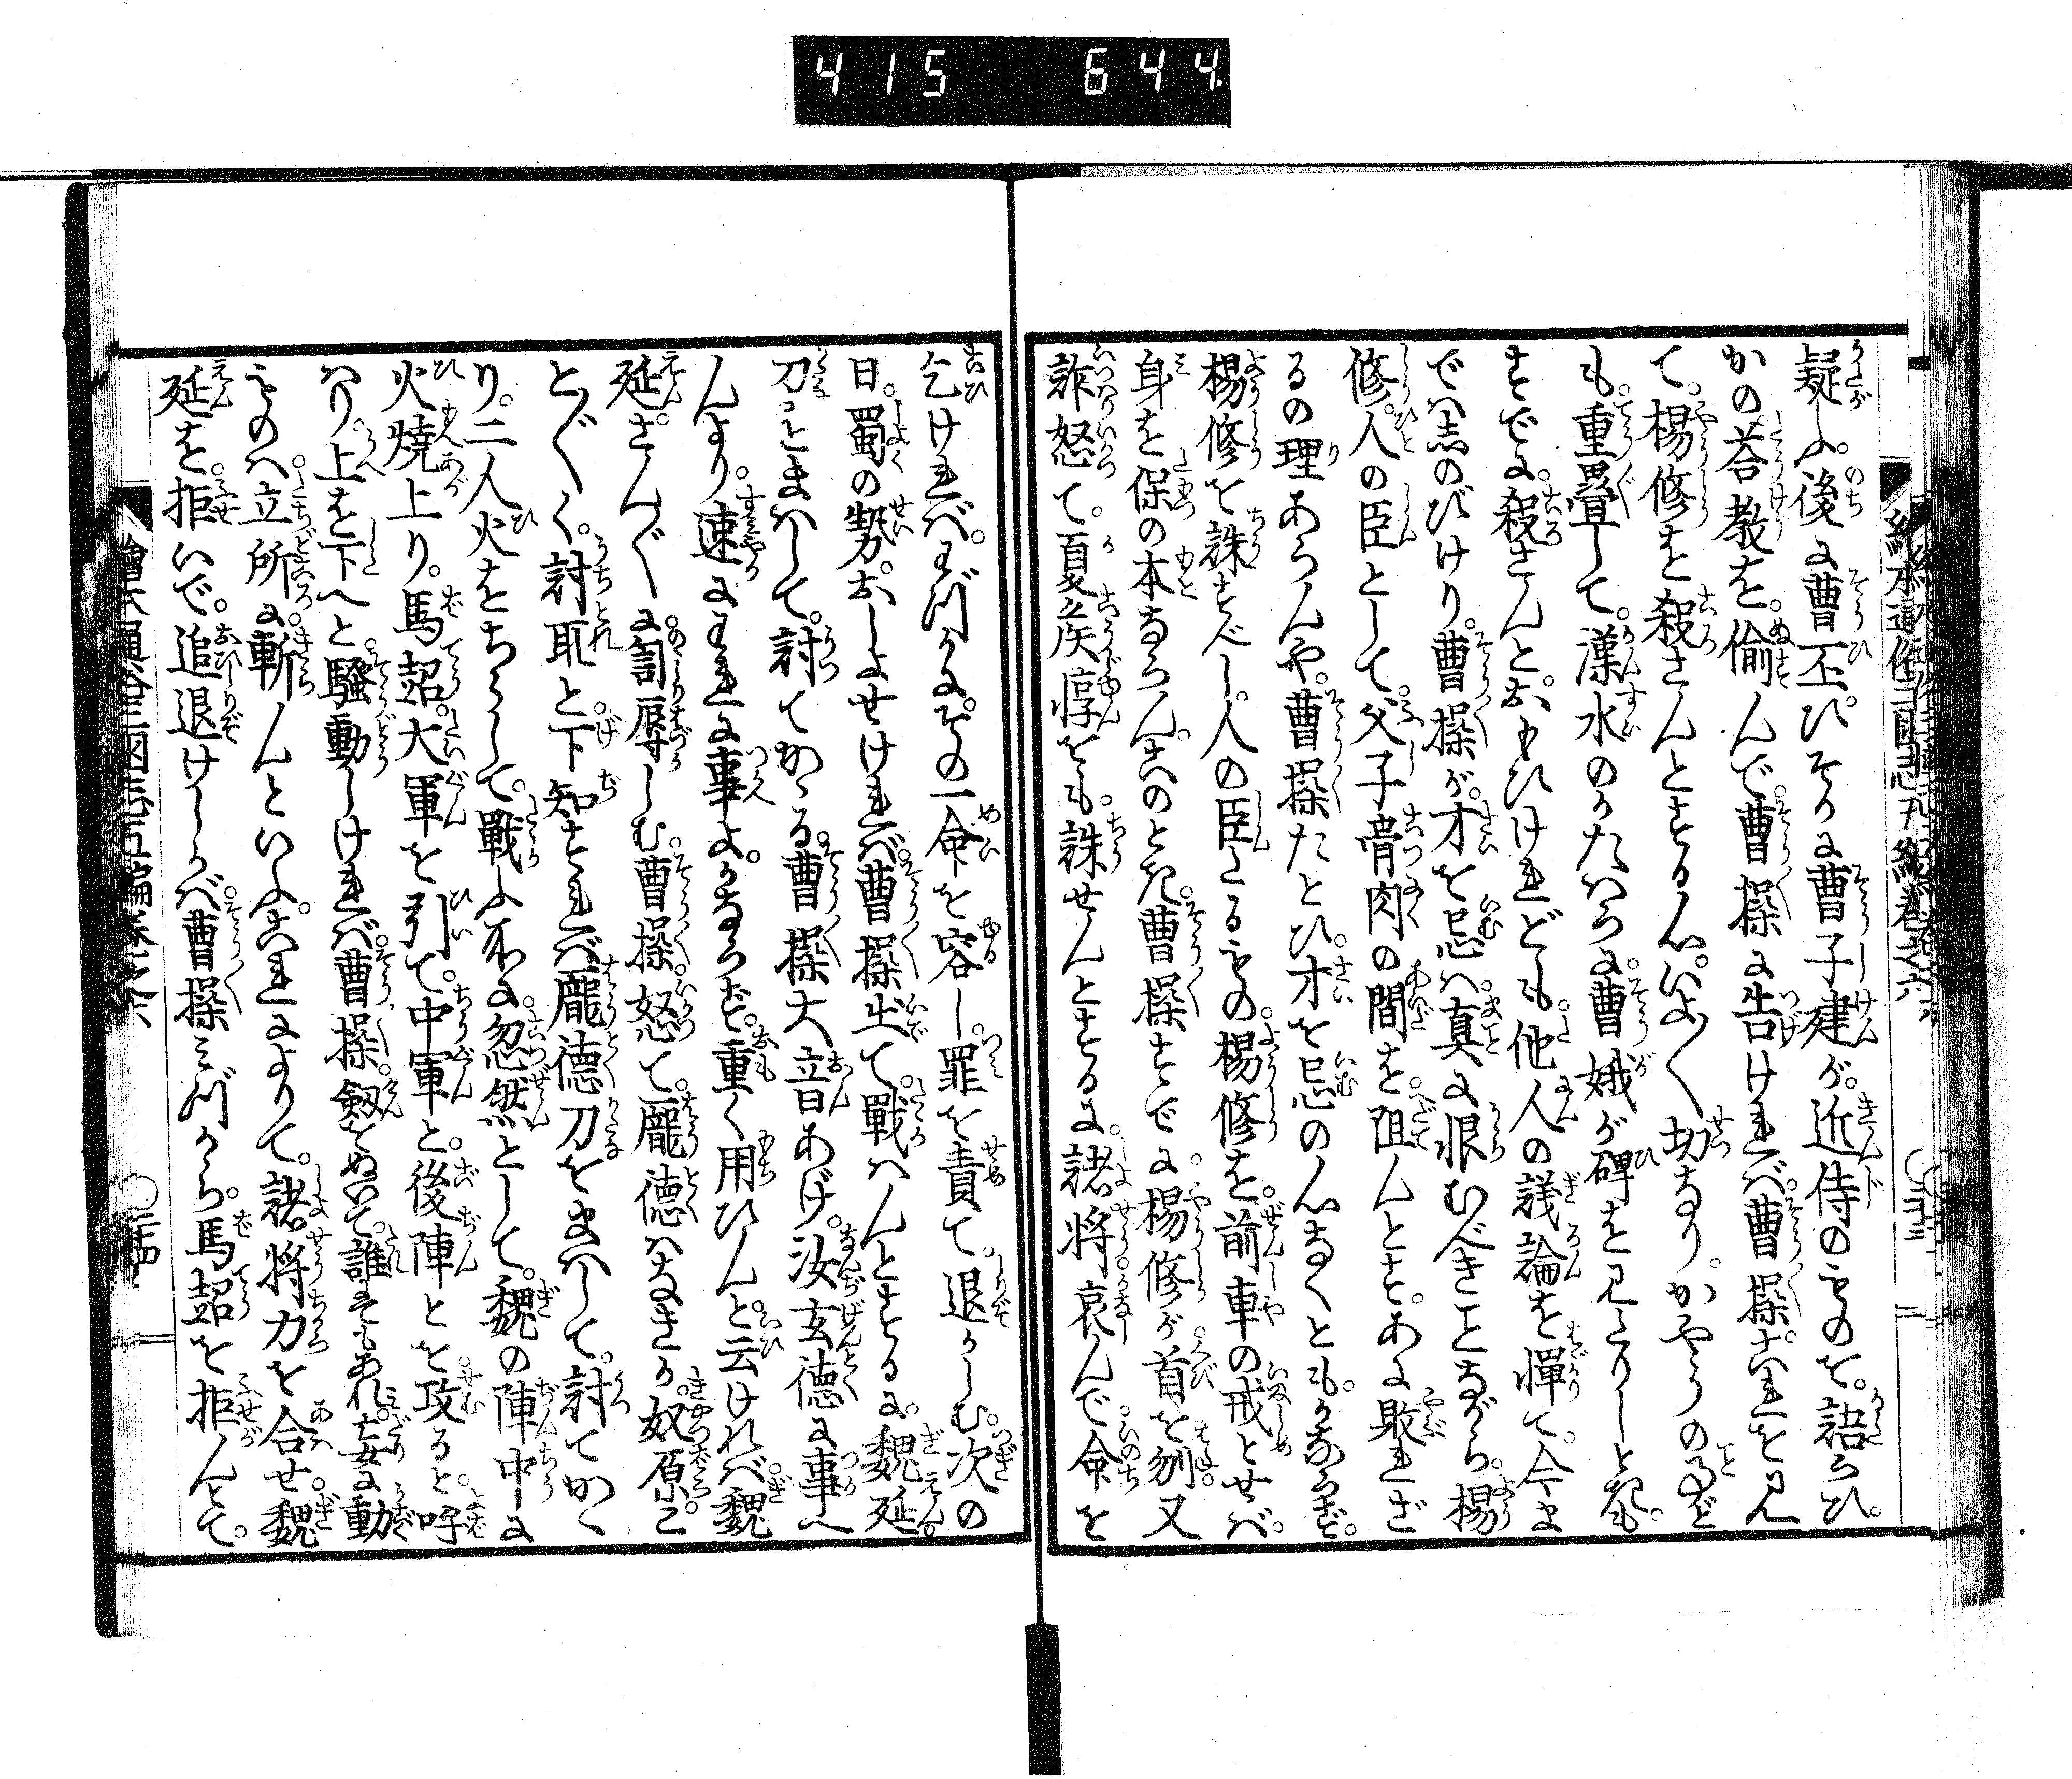 415 644.
疑ふ。後に曹丕。ひそかに曹子建が。近侍のものを。語らひ。
かの荅教を。偷んで。曹操に告ければ。曹操。これを見
て。楊修を殺さんとする心。いよ〳〵切なり。かやうの事ど
も。重疊して。漢水のかたはらに。曹娥が碑を見たりしときも。
すでに。殺さんと。おもひけれども。他人の議論を憚て。今ま
では忍のびけり。曹操が。才を忌は。真に恨むべきことながら。楊
修。人の臣として。父子骨肉の間を。阻んとす。あに敗れざ
るの理あらんや。曹操たとひ。才を忌の心なくとも。かならず。
楊修を誅すべし。人の臣たるもの。楊修を。前車の戒とせば。
身を保の本ならん。このとき。曹操すでに。楊修が。首を刎。又
詐怒て。夏侯惇をも。誅せんとするに。諸将。哀んで。命を
乞ければ。わづかに。その一命を容し。罪を責て。退かしむ。次の
日。蜀の勢。おしよせければ。曹操出て。戰はんとするに。魏延。
刀をまはして。討てかゝる。曹操大音あげ。汝玄徳に事へ
んより。速にわれに事よ。かならず。重く用ひんと。云ければ。魏
延。さん〴〵に。罰辱しむ。曹操。怒て。龐徳はなきか。奴原こ
と〴〵く。討取と。下知すれば。龐徳刀をまはして。討てかゝ
り。二人火をちらして。戰ふ所に。忽然として。魏の陣中に
火燒上り。馬超。大軍を引て。中軍と。後陣とを。攻ると。呼
はり。上を下へと。騷動しければ。曹操。劔をぬいて。誰にてもあれ。妄に動
ものは。立所に。斬んといふ。これによりて。諸将力を合せ。魏
延を。拒いで。追退けしかば。曹操みづから。馬超を拒んとて。
繪本通俗三國志五編卷之六